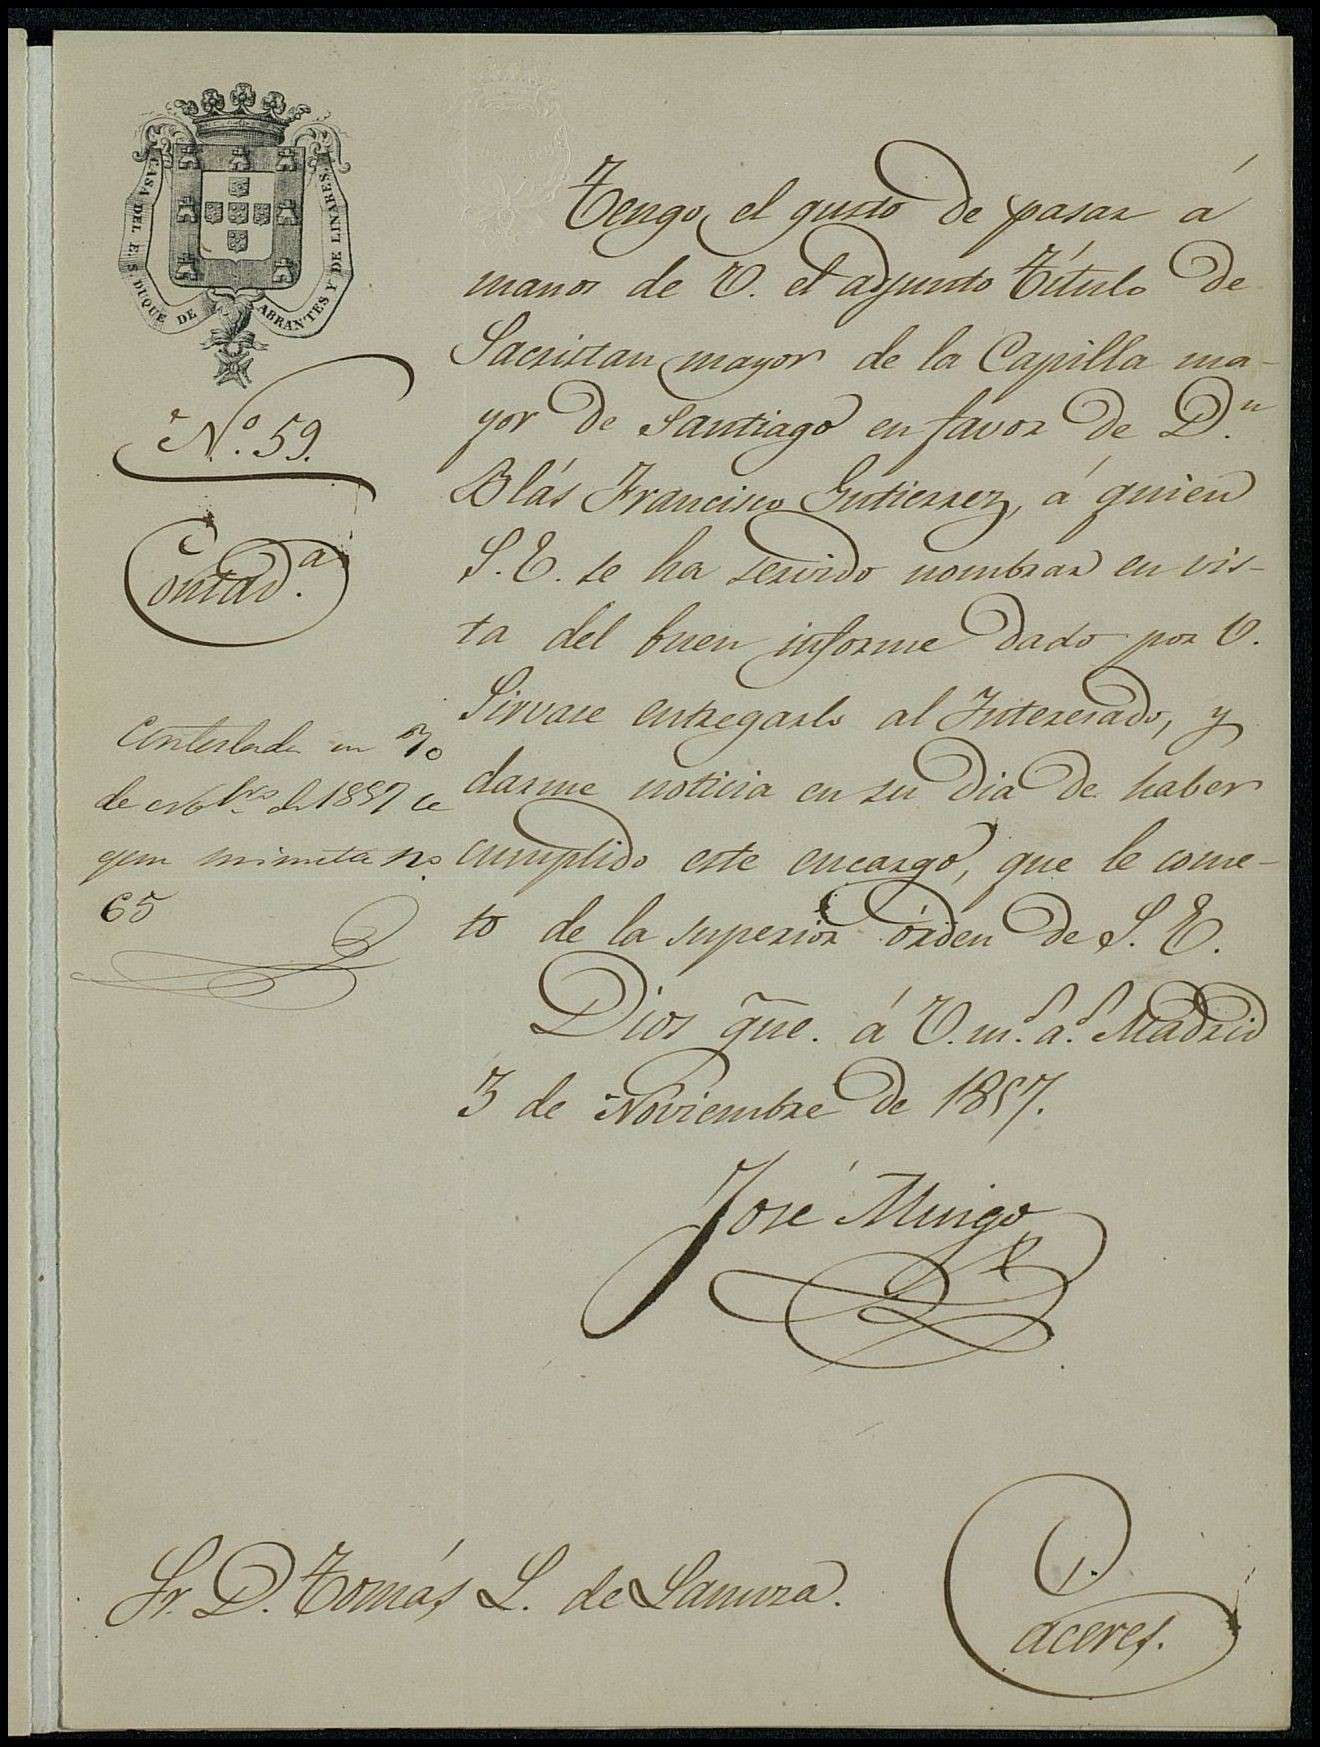 CASA DEL E. S. DUQUE DE ABRANTES Y DE LINARES.
Nº. 59.
Contadª.
Contestada en
de 1857
minuta nº
65
Tengo el gusto de pasar á
manos de V. el adjunto Título de
Sacristan mayor de la Capilla ma-
yor de Santiago en favor de Dn.
Blás Francisco Gutierrez, á quien
S. E. se ha servido nombrar en vis-
ta del buen informe dado por V.
Sirvase entregarlo al Interesado, y
darme noticia en su dia de haber
cumplido este encargo, que le come-
to de la superior órden de S. E.
Dios gũe. á V. ms. as. Madrid
3 de Noviembre de 1857.
José Mingo
Sr. D. Tomás L. de Sanura.
Caceres.